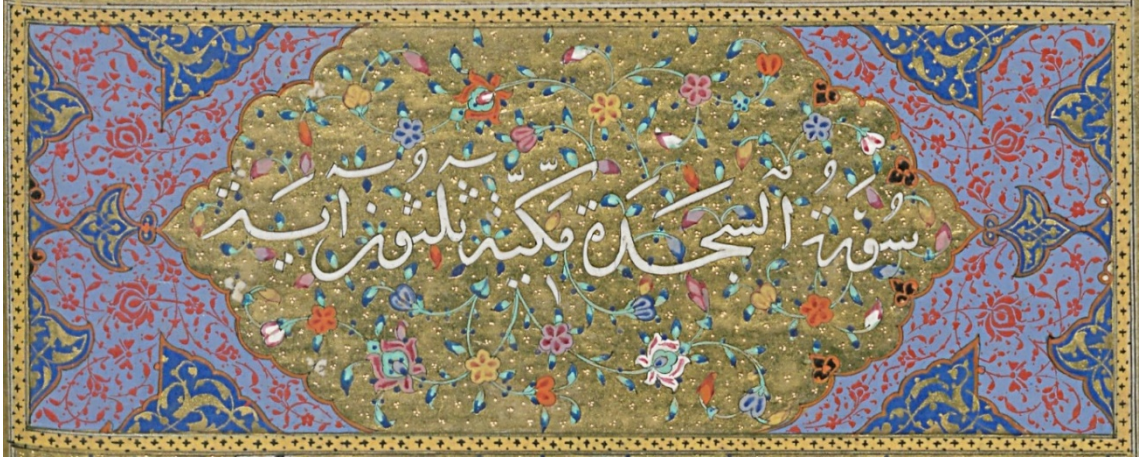 سُورَةُ السَّجْدَة مَكِّيَّة ثلثون اية